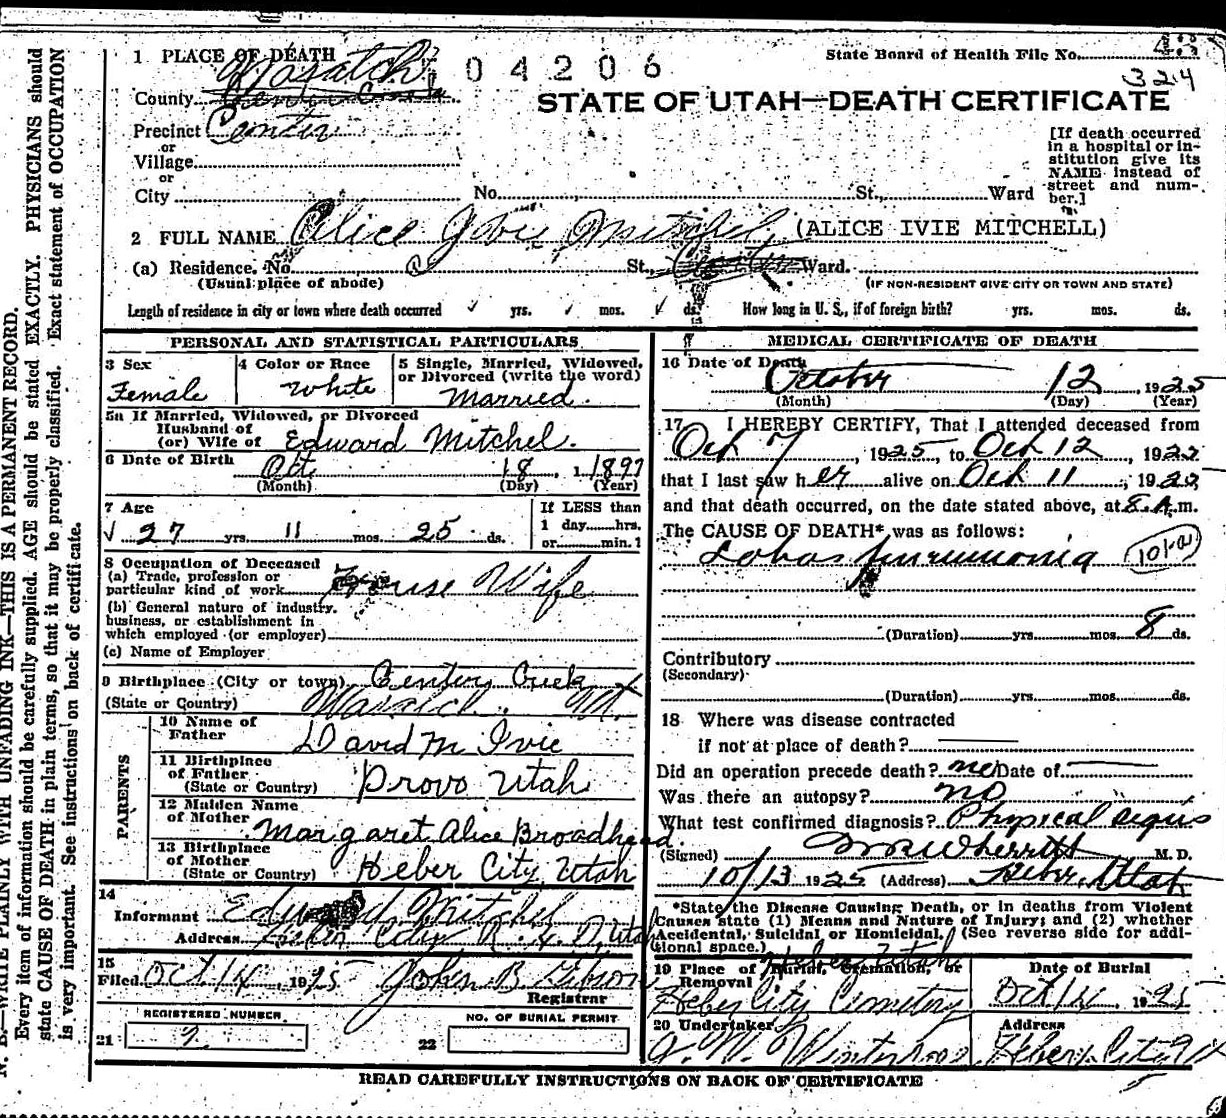 1 PLACE OF DEATH
04206
State Board of Health File No. 48
324
Wasatch
County Center Creek
STATE OF UTAH—DEATH CERTIFICATE
Precinct Center
or
Village
or
City No. St. Ward
[If death occurred in a hospital or institution give its NAME instead of street and number.]
2 FULL NAME Alice Ivie Mitchel (ALICE IVIE MITCHELL)
(a) Residence. No. St., Ward.
(Usual place of abode) (IF NON-RESIDENT GIVE CITY OR TOWN AND STATE)
Length of residence in city or town where death occurred yrs. mos. ds. How long in U. S., if of foreign birth? yrs. mos. ds.
PERSONAL AND STATISTICAL PARTICULARS
3 Sex
Female
4 Color or Race
White
5 Single, Married, Widowed, or Divorced (write the word)
Married.
5a If Married, Widowed, or Divorced
Husband of
(or) Wife of Edward Mitchel.
6 Date of Birth Oct 18, 1897
(Month) (Day) (Year)
7 Age
27 yrs. 11 mos. 25 ds.
If LESS than
1 day......hrs.
or......min.?
8 Occupation of Deceased
(a) Trade, profession or
particular kind of work House Wife
(b) General nature of industry,
business, or establishment in
which employed (or employer)
(c) Name of Employer
9 Birthplace (City or town) Center Creek
(State or Country) Wasatch. Ut.
PARENTS
10 Name of Father David M Ivie
11 Birthplace of Father
(State or Country) Provo Utah
12 Maiden Name of Mother Margaret Alice Broadhead.
13 Birthplace of Mother
(State or Country) Heber City, Utah
14
Informant Edward Mitchel
Address Heber City R.F.D. Utah
15
Filed Oct 14, 1925 John B. Gibson
Registrar
REGISTERED NUMBER
21 2
NO. OF BURIAL PERMIT
22
MEDICAL CERTIFICATE OF DEATH
16 Date of Death
October 12, 1925
(Month) (Day) (Year)
17 I HEREBY CERTIFY, That I attended deceased from
Oct 7, 1925, to Oct 12, 1925
that I last saw her alive on Oct 11, 1925,
and that death occurred, on the date stated above, at 8 A.m.
The CAUSE OF DEATH* was as follows:
Lobar pneumonia 101-a
(Duration) yrs. mos. 8 ds.
Contributory
(Secondary)
(Duration) yrs. mos. ds.
18 Where was disease contracted
if not at place of death?
Did an operation precede death? no Date of
Was there an autopsy? no
What test confirmed diagnosis? Physical signs
(Signed) Wherritt M. D.
10/13 1925 (Address) Heber, Utah
*State the Disease Causing Death, or in deaths from Violent
Causes state (1) Means and Nature of Injury; and (2) whether
Accidental, Suicidal or Homicidal. (See reverse side for addi-
tional space.)
Heber Utah
19 Place of Burial, Cremation, or Removal
Heber City Cemetery
Date of Burial
Oct 14 1925
20 Undertaker
Address
Heber City Ut
READ CAREFULLY INSTRUCTIONS ON BACK OF CERTIFICATE
N. B.—WRITE PLAINLY WITH UNFADING INK—THIS IS A PERMANENT RECORD.
Every item of information should be carefully supplied. AGE should be stated EXACTLY. PHYSICIANS should
state CAUSE OF DEATH in plain terms, so that it may be properly classified. Exact statement of OCCUPATION
is very important. See instructions on back of certificate.